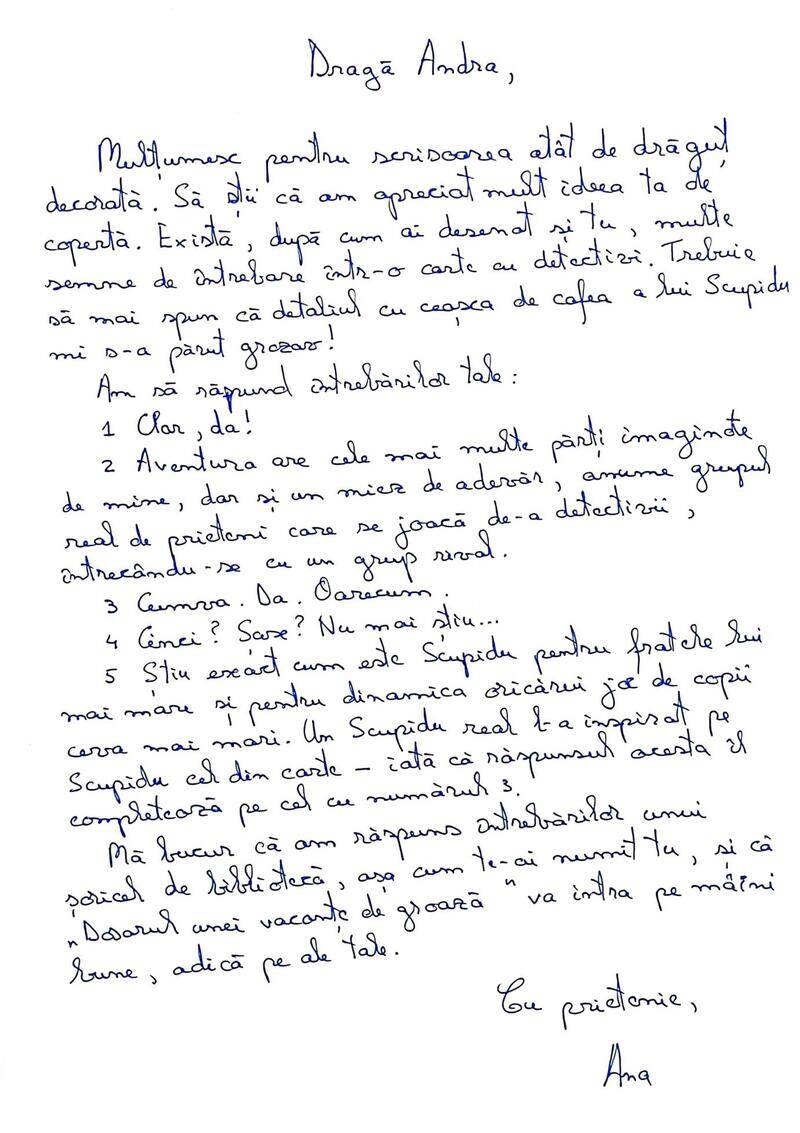 Dragă Andra,
Mulțumesc pentru scrisoarea atât de drăguț
decorată. Să știi că am apreciat mult ideea ta de
copertă. Există, după cum ai desenat și tu, multe
semne de întrebare într-o carte cu detectivi. Trebuie
să mai spun că detaliul cu ceașca de cafea a lui Scupidu
mi s-a părut grozav!
Am să răspund întrebărilor tale:
1 Clar, da!
2 Aventura are cele mai multe părți imaginate
de mine, dar și un miez de adevăr, anume grupul
real de prieteni care se joacă de-a detectivii,
întrecându-se cu un grup rival.
3 Cumva. Da. Oarecum.
4 Cinci? Șase? Nu mai știu...
5 Știu exact cum este Scupidu pentru fratele lui
mai mare și pentru dinamica oricărui joc de copii
ceva mai mari. Un Scupidu real l-a inspirat pe
Scupidu cel din carte – iată că răspunsul acesta îl
completează pe cel cu numărul 3.
Mă bucur că am răspuns întrebărilor unui
șoricel de bibliotecă, așa cum te-ai numit tu, și că
„Dosarul unei vacanțe de groază" va intra pe mâini
bune, adică pe ale tale.
Cu prietenie,
Ana